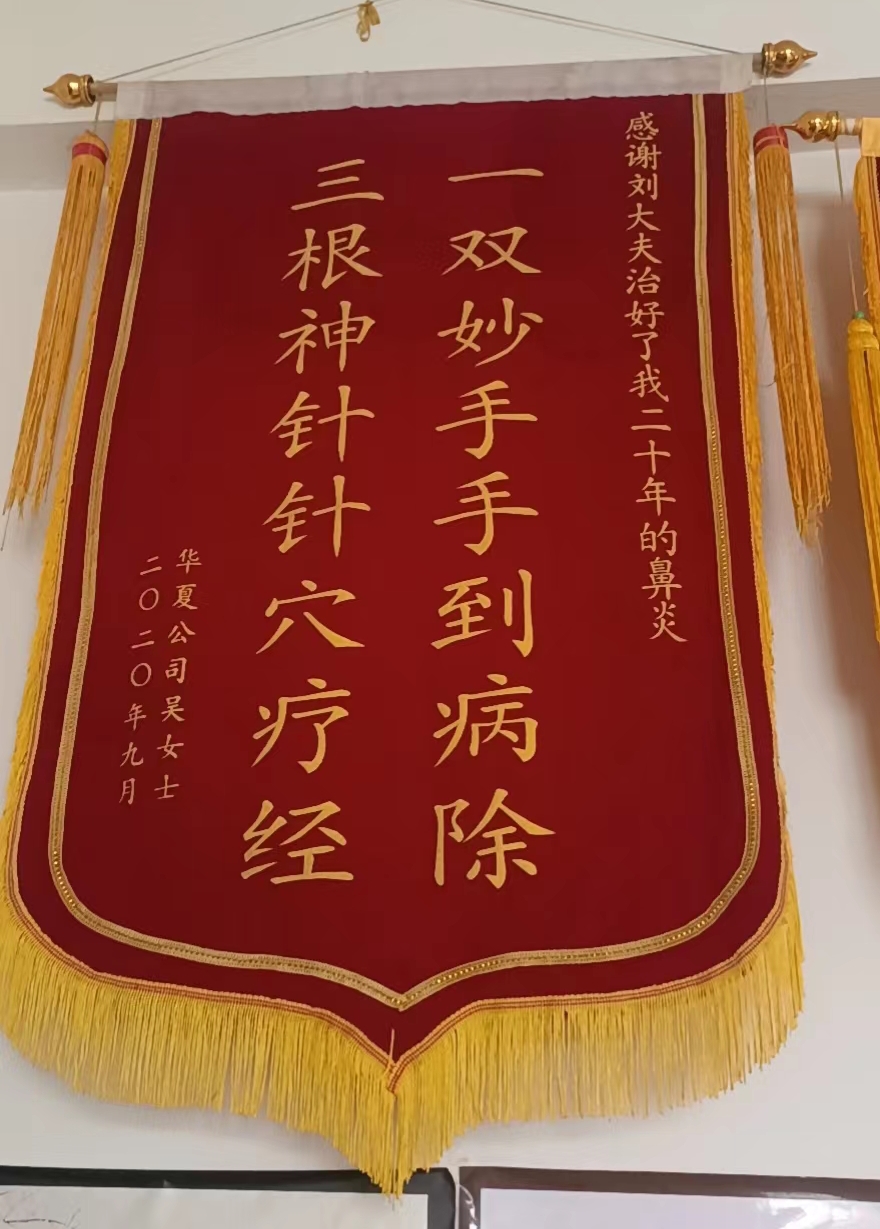 感谢刘大夫治好了我二十年的鼻炎
一双妙手手到病除
三根神针针穴疗经
华夏公司吴女士
二〇二〇年九月